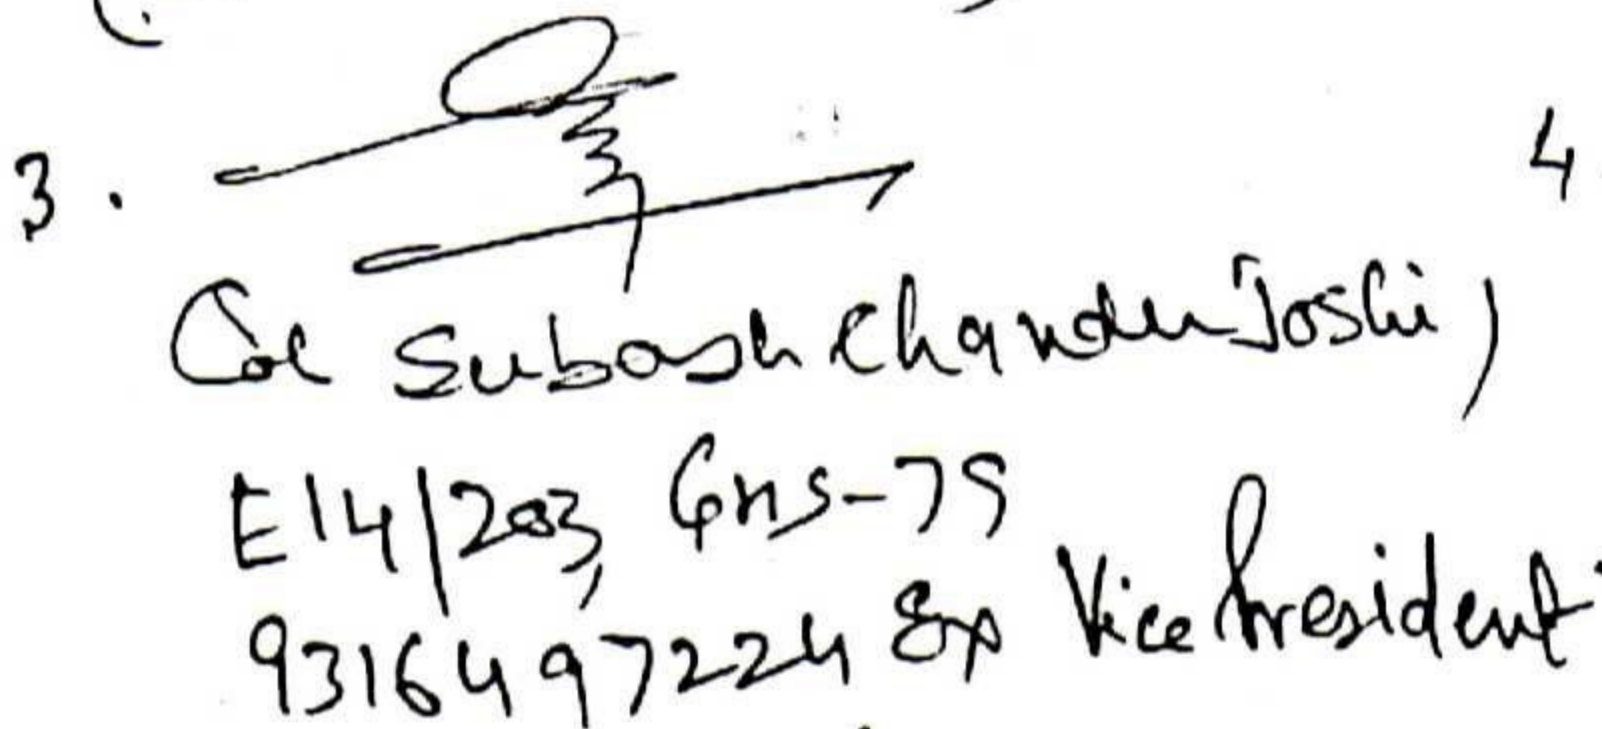 3. 4
Col Subash Chander Joshi,
E14/203, GHS-79
9316497224 Ex Vice President